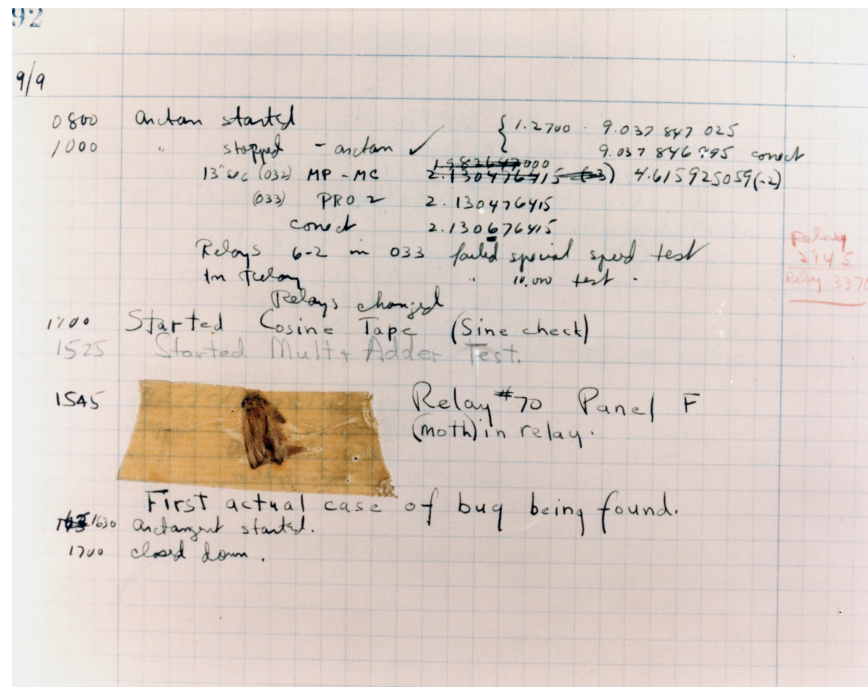 92
9/9
0800 Antan started
1000 " stopped - antan ✓ { 1.2700 9.037 847 025
9.037 846 995 conect
13"uc (032) MP - MC 1.982647000 2.130476415 (-3) 4.615925059(-2)
(033) PRO 2 2.130476415
conect 2.130676415
Relays 6-2 in 033 failed special speed test
In Relay " 10,000 test.
Relays changed
Relay
2145
Relay 3370
1700 Started Cosine Tape (Sine check)
1525 Started Mult + Adder Test.
1545 Relay #70 Panel F
(moth) in relay.
First actual case of bug being found.
1630 Antangent started.
1700 closed down.